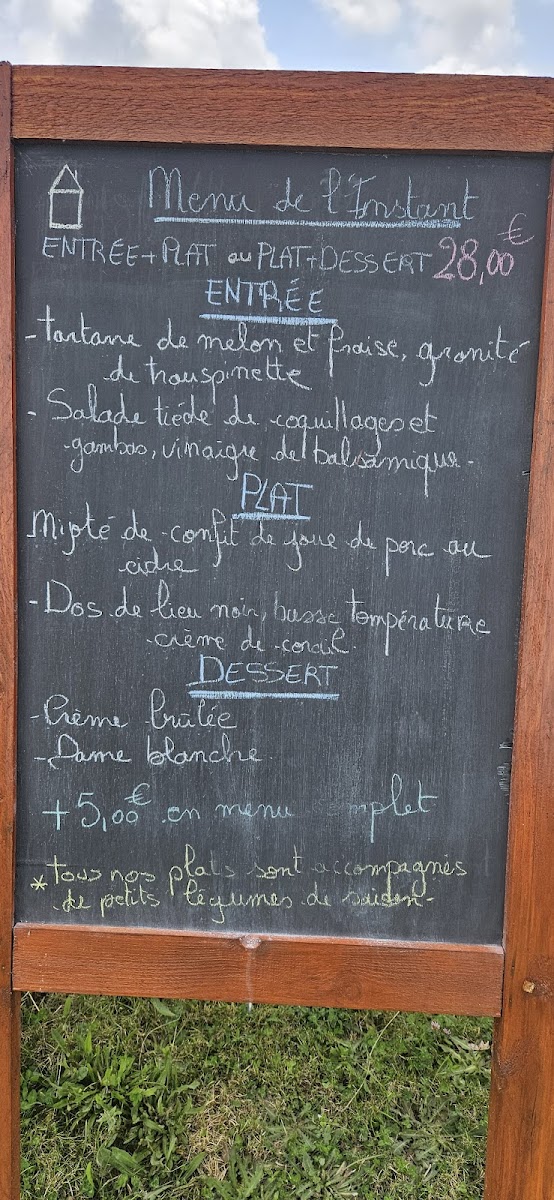 Menu de l'Instant
ENTRÉE + PLAT ou PLAT + DESSERT 28,00€
ENTRÉE
- Tartare de melon et fraise, granité
de trouspinette
- Salade tiède de coquillages et
gambas, vinaigre de balsamique.
PLAT
Mijoté de confit de joue de porc au
cidre
- Dos de lieu noir, basse température
crème de corail.
DESSERT
- Crème brûlée
- Dame blanche
+ 5,00€ en menu mplet
* Tous nos plats sont accompagnés
de petits légumes de saison.